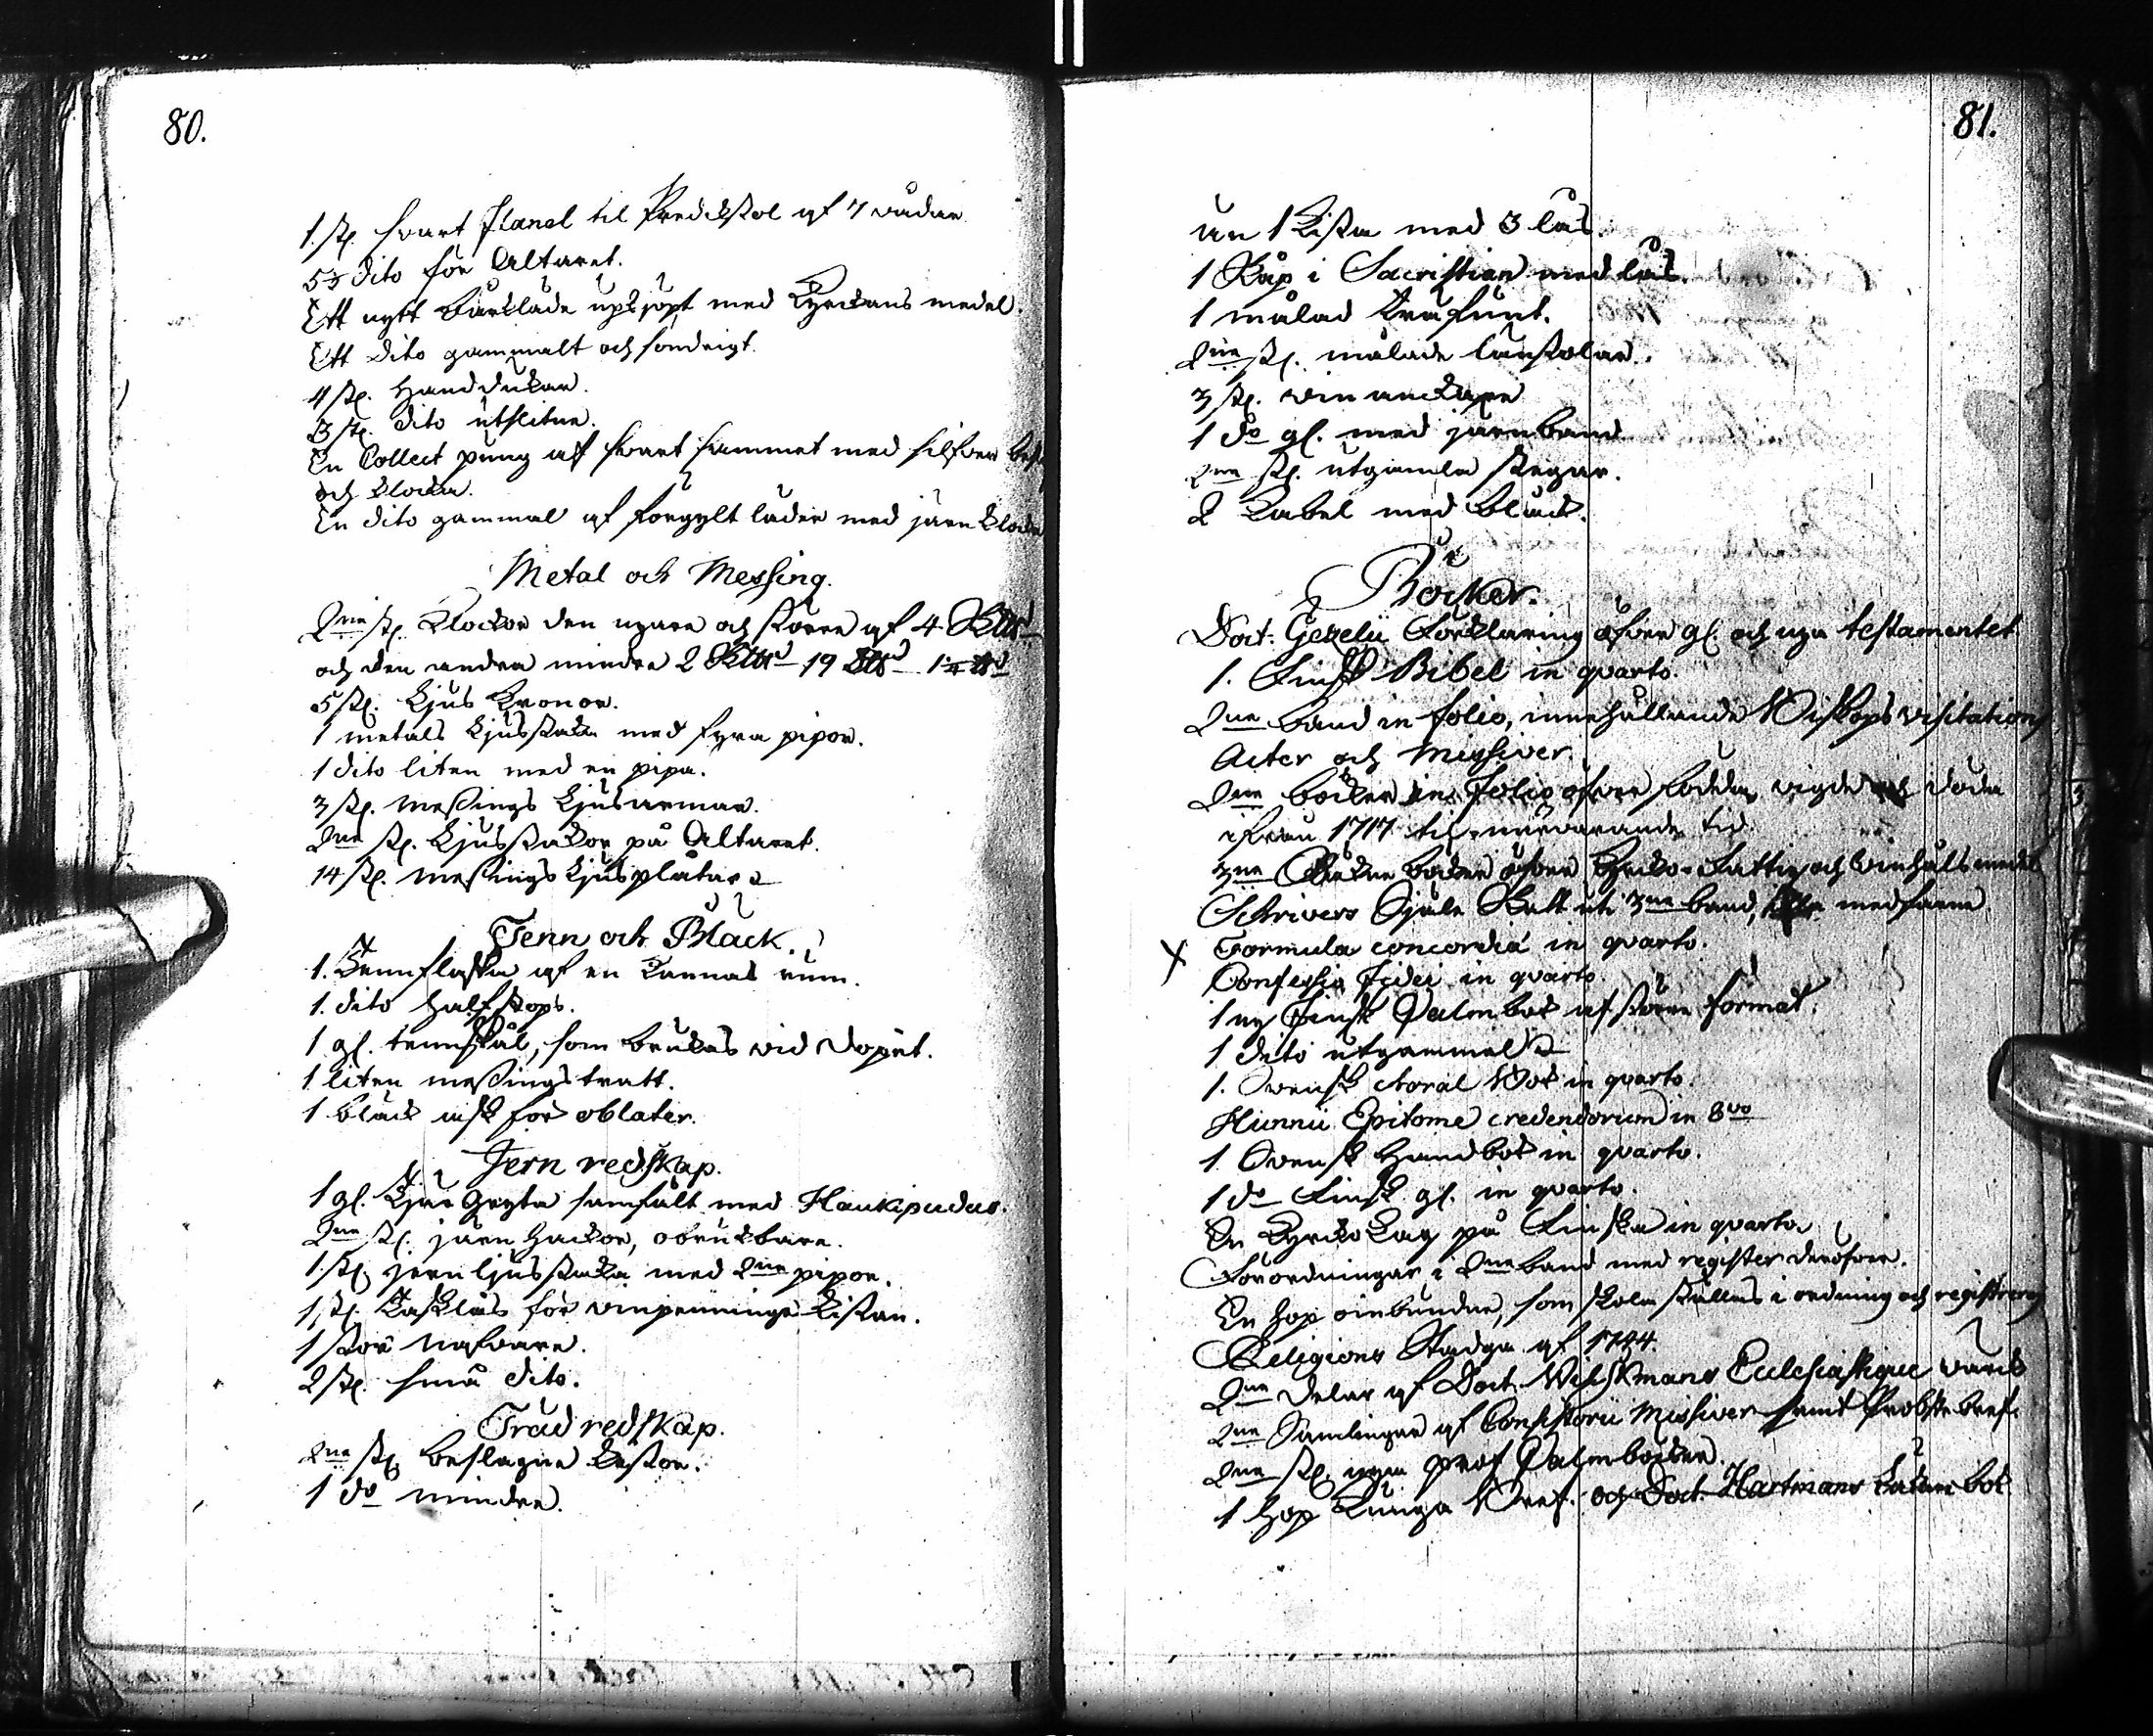 80.
1. st. svart flanel til Predikstol af 7 vådar
5 dito för Altaret.
Ett nytt bårkläde upköpt med Kyrckans medel.
Ett dito gammalt och söndrigt.
4 st. Handdukar.
3 st. dito utslitne.
En Collect pung af svart sammet med silfver
och klocka.
En dito gammal af förgylt läder med järn klocka
Metal och Messing.
2ne st. Klockor den nyare och större af 4
och den andra mindre 2 19
5 st. Ljus Kronor.
1 metals Ljusstaka med fyra pipor.
1 dito liten med en pipa.
3 st. messings Ljusarmar.
2ne st. Ljusstakor på Altaret.
14 st. messings Ljusplåtar
Tenn och Bläck.
1. Tennflaska af en Kannas rum.
1. dito halfstops.
1 gl. tennskål, som brukas vid Dopet.
1 liten messings tratt.
1 bläck ask för oblater.
Jern redskap.
1 gl. Tjäru Gryta samfält med Haukipudas.
2ne st. järn Hackor, obrukbara.
1. st. jern ljusstaka med 2ne pipor.
1 st. Kasklås för vinpennings Kistan.
1 stor Nafvare.
2 st. små dito.
Träd redskap.
2ne st. beslagne Kistor.
1 do mindre.
81.
än 1 Kista med 3 lås.
1 Skåp i Sacristian med lås.
1 målad
2ne st. målade länstolar.
3 st. vin anckare
1 do gl. med järnband
2ne st. utgamla stegar.
2 Kabel med bläck.
Böcker.
Doct: Gezelii Förklaring öfver gl. och nya testamentet
1. Finsk Bibel in qvarto.
2ne band in folio, innehållande Biskops visitations
Acter och Missiver.
2ne böcker in Folio öfver födda, vigde och döda
ifrån 1717 til närvarande tid.
3ne Räkne böcker öfver Kyrko- Fattig och vinhåls medel
Schrivers Själa Skatt uti 3ne band, illa medfarne
X Formula concordiæ in qvarto.
Confessio Fidei in qvarto.
1 ny Finsk Psalmbok af större format.
1 dito utgammal
1. Svensk choral Bok in qvarto.
Hunnii Epitome credendorum in 8vo
1. Svensk Handbok in qvarto.
1 do Finsk gl. in qvarto.
En Kyrko Lag på Finska in qvarto.
Förordningar i 2ne band med register deröfver.
En hop oinbundne, som skola ställas i ordning och registreras
Religions Stadga af 1744.
2ne Delar af Doct. Wilskmans Ecclesiastique värck
2ne Samlingar af Consistorii Missiver samt Probste bref.
2ne st. nya prof Psalmböcker.
1 hop Kunga Bref. och Doct. Hartmans Läkare bok